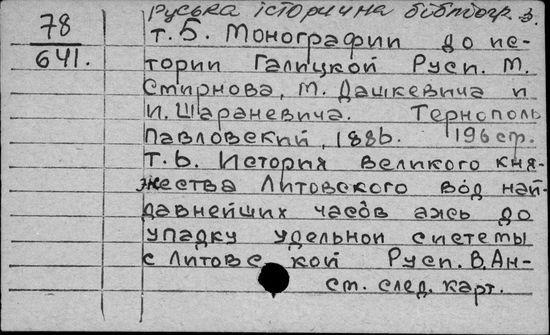 руська історична бібліогр. з.
78
641.
т. 5. Монографии до ис-
тории Галицкой Руси. М.
Смирнова, М. Дашкевича и
И. Шараневича. Тернополь
Павловский, 1886. 196 стр.
т. 6. История великого кня-
жества Литовского вôд най-
давнейших часôв ажь до
упадку удельной системы
с Литовс кой Руси. В. Ан-
см. след. карт.